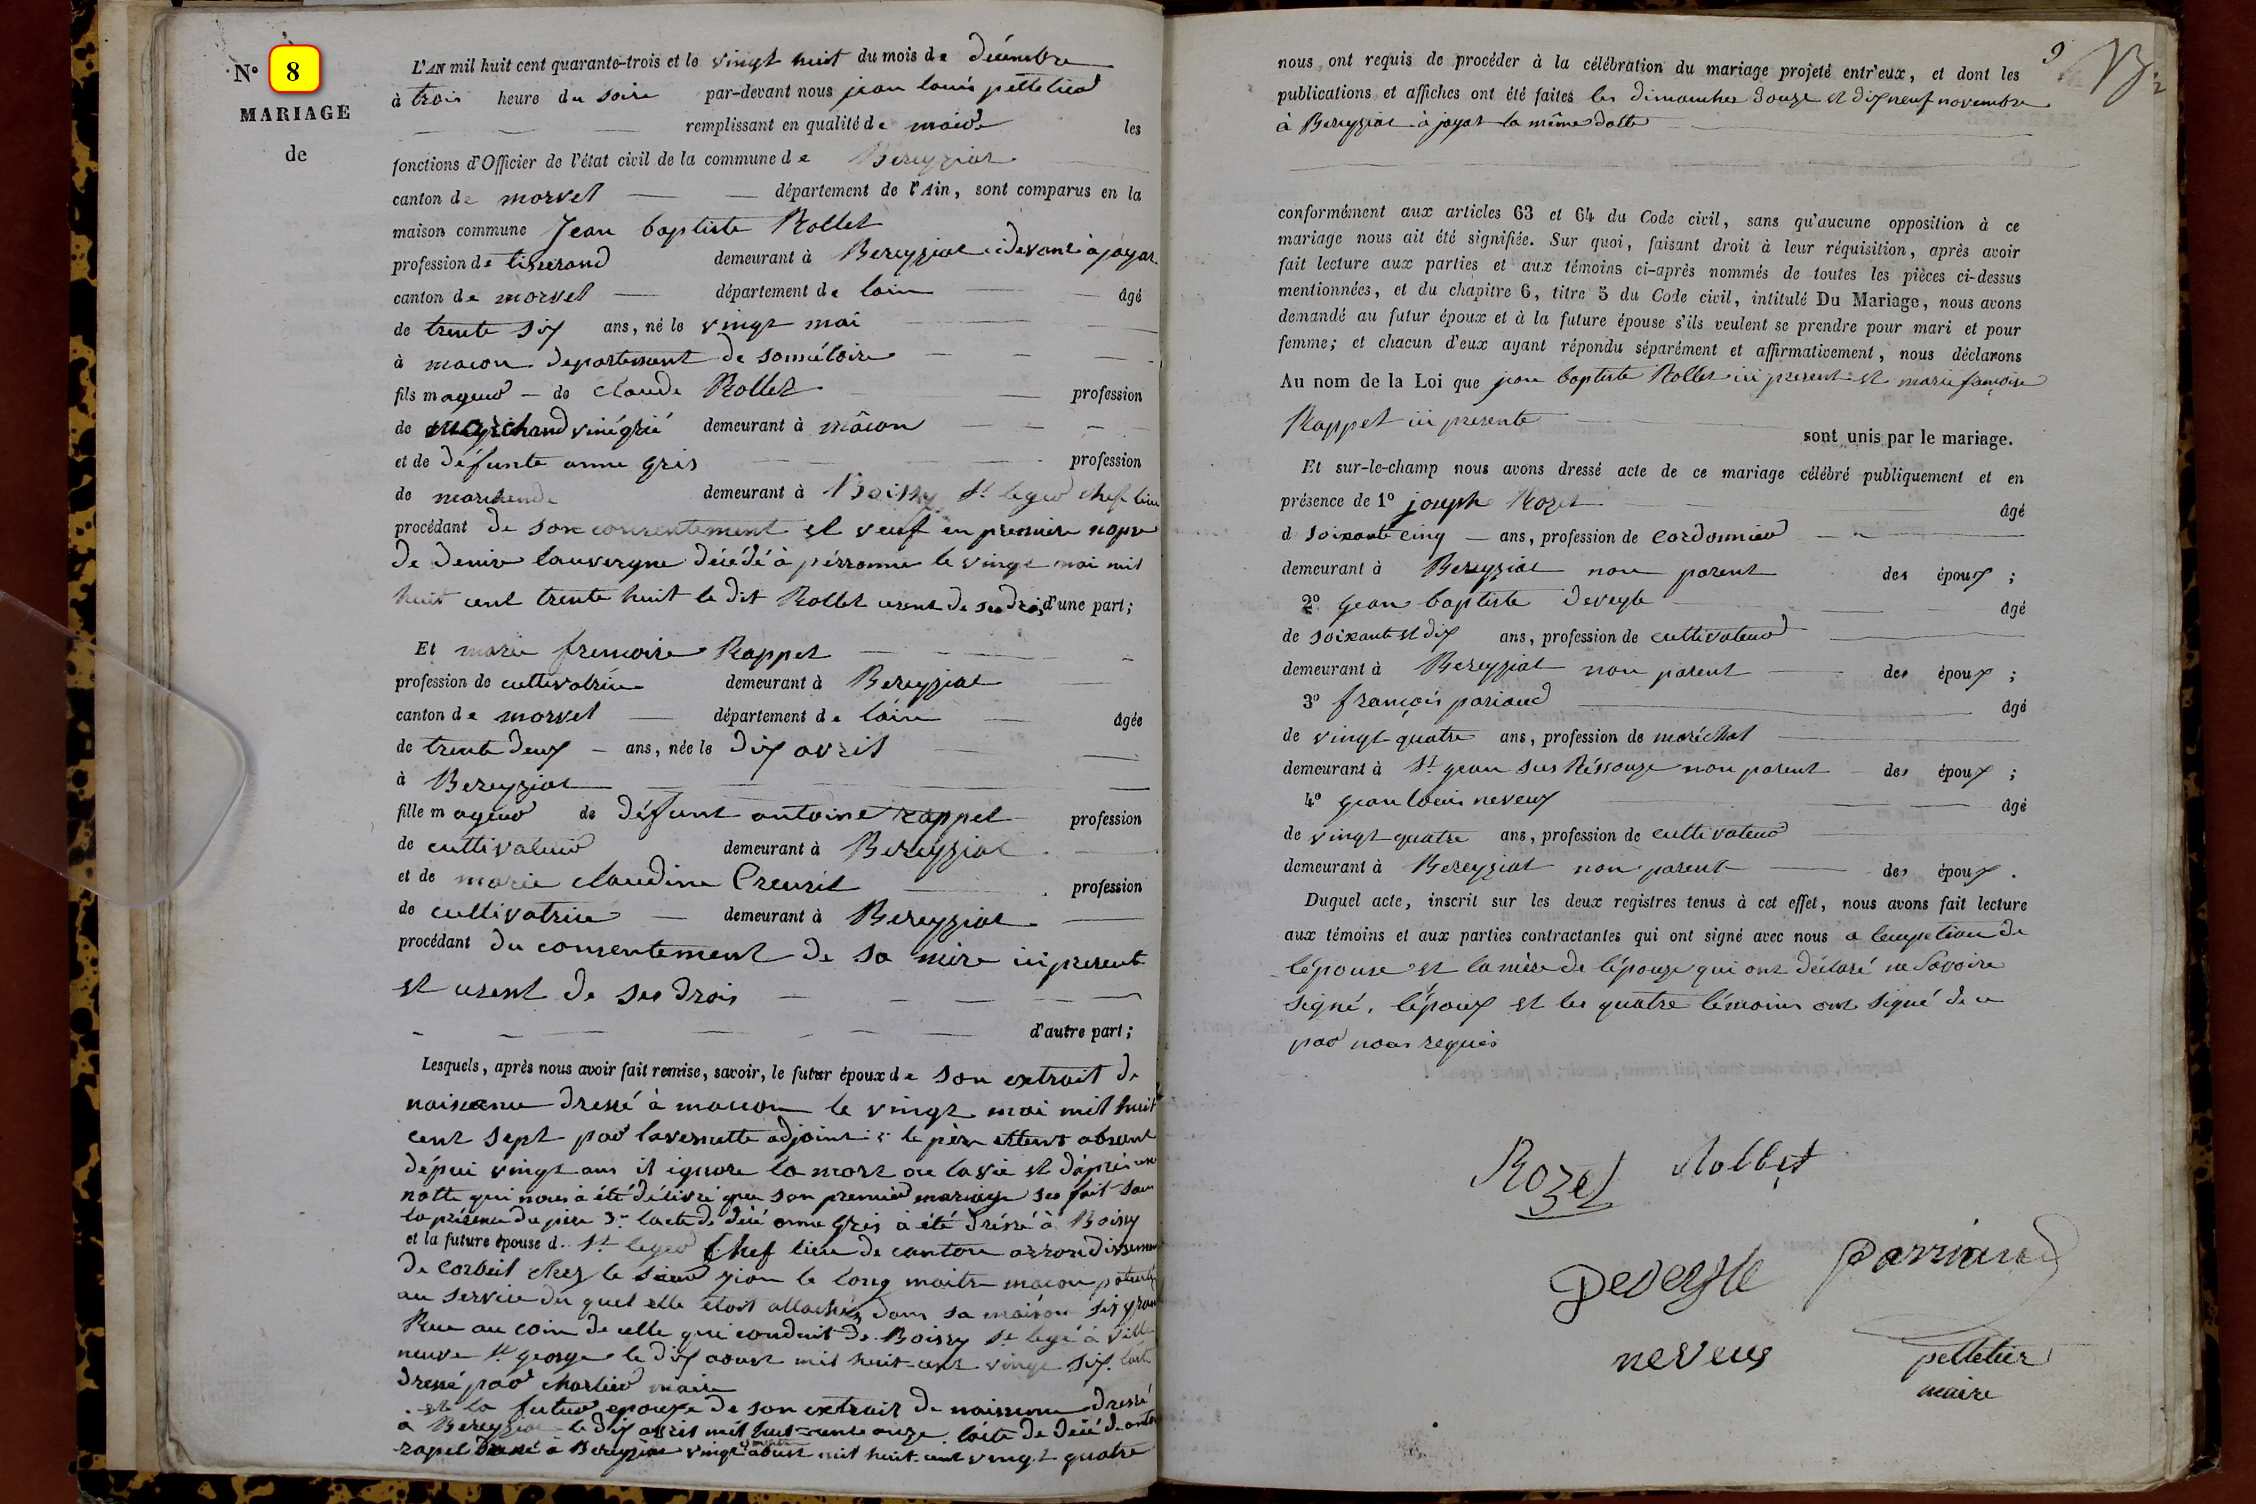 N° 8
MARIAGE
de
L'AN mil huit cent quarante-trois et le vingt huit du mois de décembre
à trois heure du soire par-devant nous jean louis pelletier
remplissant en qualité de maire les
fonctions d'Officier de l'état civil de la commune de Bereyziat
canton de morvel département de l'Ain, sont comparus en la
maison commune Jean baptiste Rollet
profession de tisserand demeurant à Bereyziat cidevant à jayat
canton de morvel département de lain âgé
de trente six ans, né le vingt mai
à macon departement de
fils mageur de claude Rollet profession
de marchand demeurant à mâcon
et de défunte anne gris profession
de marchande demeurant à Boissy St leger chef lieu
procédant de son consentement et veuf en premiere
de lauvergne décédé à le vingt mai mil
huit cent trente huit le dit Rollet usent de ses d'une part;
Et marie Rappet
profession de cultivatrice demeurant à Bereyziat
canton de morvel département de lain âgée
de trente deux ans, née le dix avril
à Bereyziat
fille mageur de défunt antoine rappet profession
de cultivateur demeurant à Bereyziat
et de marie claudine profession
de cultivatrice demeurant à Bereyziat
procédant du consentement de sa mère ici present
et usent de ses drois
d'autre part;
Lesquels, après nous avoir fait remise, savoir, le futur époux de son extrait de
dressé à macon le vingt mai mil huit
cent sept par adjoint le père absant
dépui vingt ans il ignore la mort ou la vie et d'après une
notte qui nous à été délivré que son premier mariage fait
la du père 3° lacte de anne gris à été à Boissy
et la future épouse d. St leger Chef lieu de canton
de corbeil chez le sieur le long maitre macon
au service du quel elle étoit dans sa maison
Rue au coin de celle qui conduit de Boissy St à
neuve St george le dix mil huit cent vingt six
dressé par maire
et la futur epouze de son extrait de dressé
a Bereyziat le dix avril mil huit onze de
rapet à Bereyziat vingt mil huit cent vingt quatre
9
nous ont requis de procéder à la célébration du mariage projeté entr'eux, et dont les
publications et affiches ont été faites les dimanches douze et dix neuf novembre
à Bereyziat à jayat la même datte
conformément aux articles 63 et 64 du Code civil, sans qu'aucune opposition à ce
mariage nous ait été signifiée. Sur quoi, faisant droit à leur réquisition, après avoir
fait lecture aux parties et aux témoins ci-après nommés de toutes les pièces ci-dessus
mentionnées, et du chapitre 6, titre 5 du Code civil, intitulé Du Mariage, nous avons
demandé au futur époux et à la future épouse s'ils veulent se prendre pour mari et pour
femme; et chacun d'eux ayant répondu séparément et affirmativement, nous déclarons
Au nom de la Loi que jean baptiste Rollet ici present et marie
Rappet ici presente
sont unis par le mariage.
Et sur-le-champ nous avons dressé acte de ce mariage célébré publiquement et en
présence de 1° joseph Rozet âgé
d soixante cinq ans, profession de cordonnier
demeurant à Bereyziat non parent des époux;
2° jean baptiste deveyle âgé
de soixante et dix ans, profession de cultivateur
demeurant à Bereyziat non parent des époux;
3° françois pariaud âgé
de vingt quatre ans, profession de maréchal
demeurant à St jean sus Réssouze non parent des époux;
4° jean louis neveux âgé
de vingt quatre ans, profession de cultivateur
demeurant à Bereyziat non parent des époux.
Duquel acte, inscrit sur les deux registres tenus à cet effet, nous avons fait lecture
aux témoins et aux parties contractantes qui ont signé avec nous a de
lépouse et la mère de lépouze qui ont déclaré ne savoire
signé, lépoux et les quatre témoins ont signé de ce
par nous requis
Rozet Rollet
Deveyle parriaud
neveux pelletier
maire